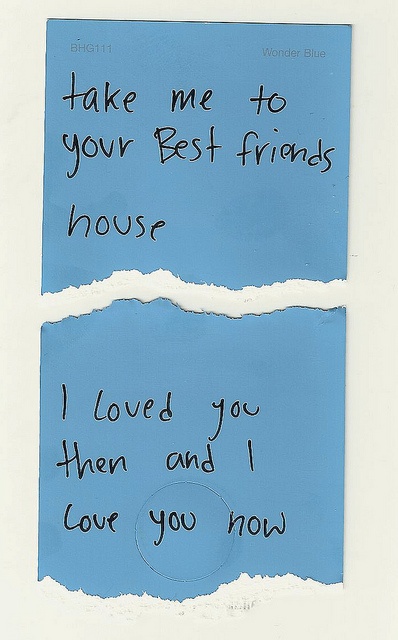 BHG111 Wonder Blue
take me to
your Best friends
house
I loved you
then and I
love you now